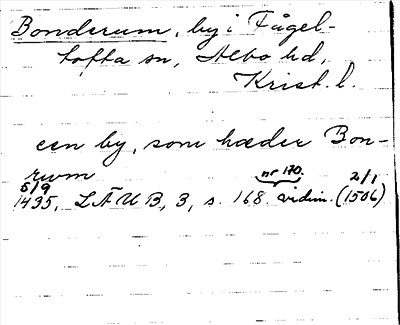 Bonderum, by i Fågel-
tofta sn, Albo hd,
Krist. l.
een by, som hæder Bon-
rum
5/9 nr 170. 2/1
1435, LÄUB, 3, s. 168. vidim. (1506)